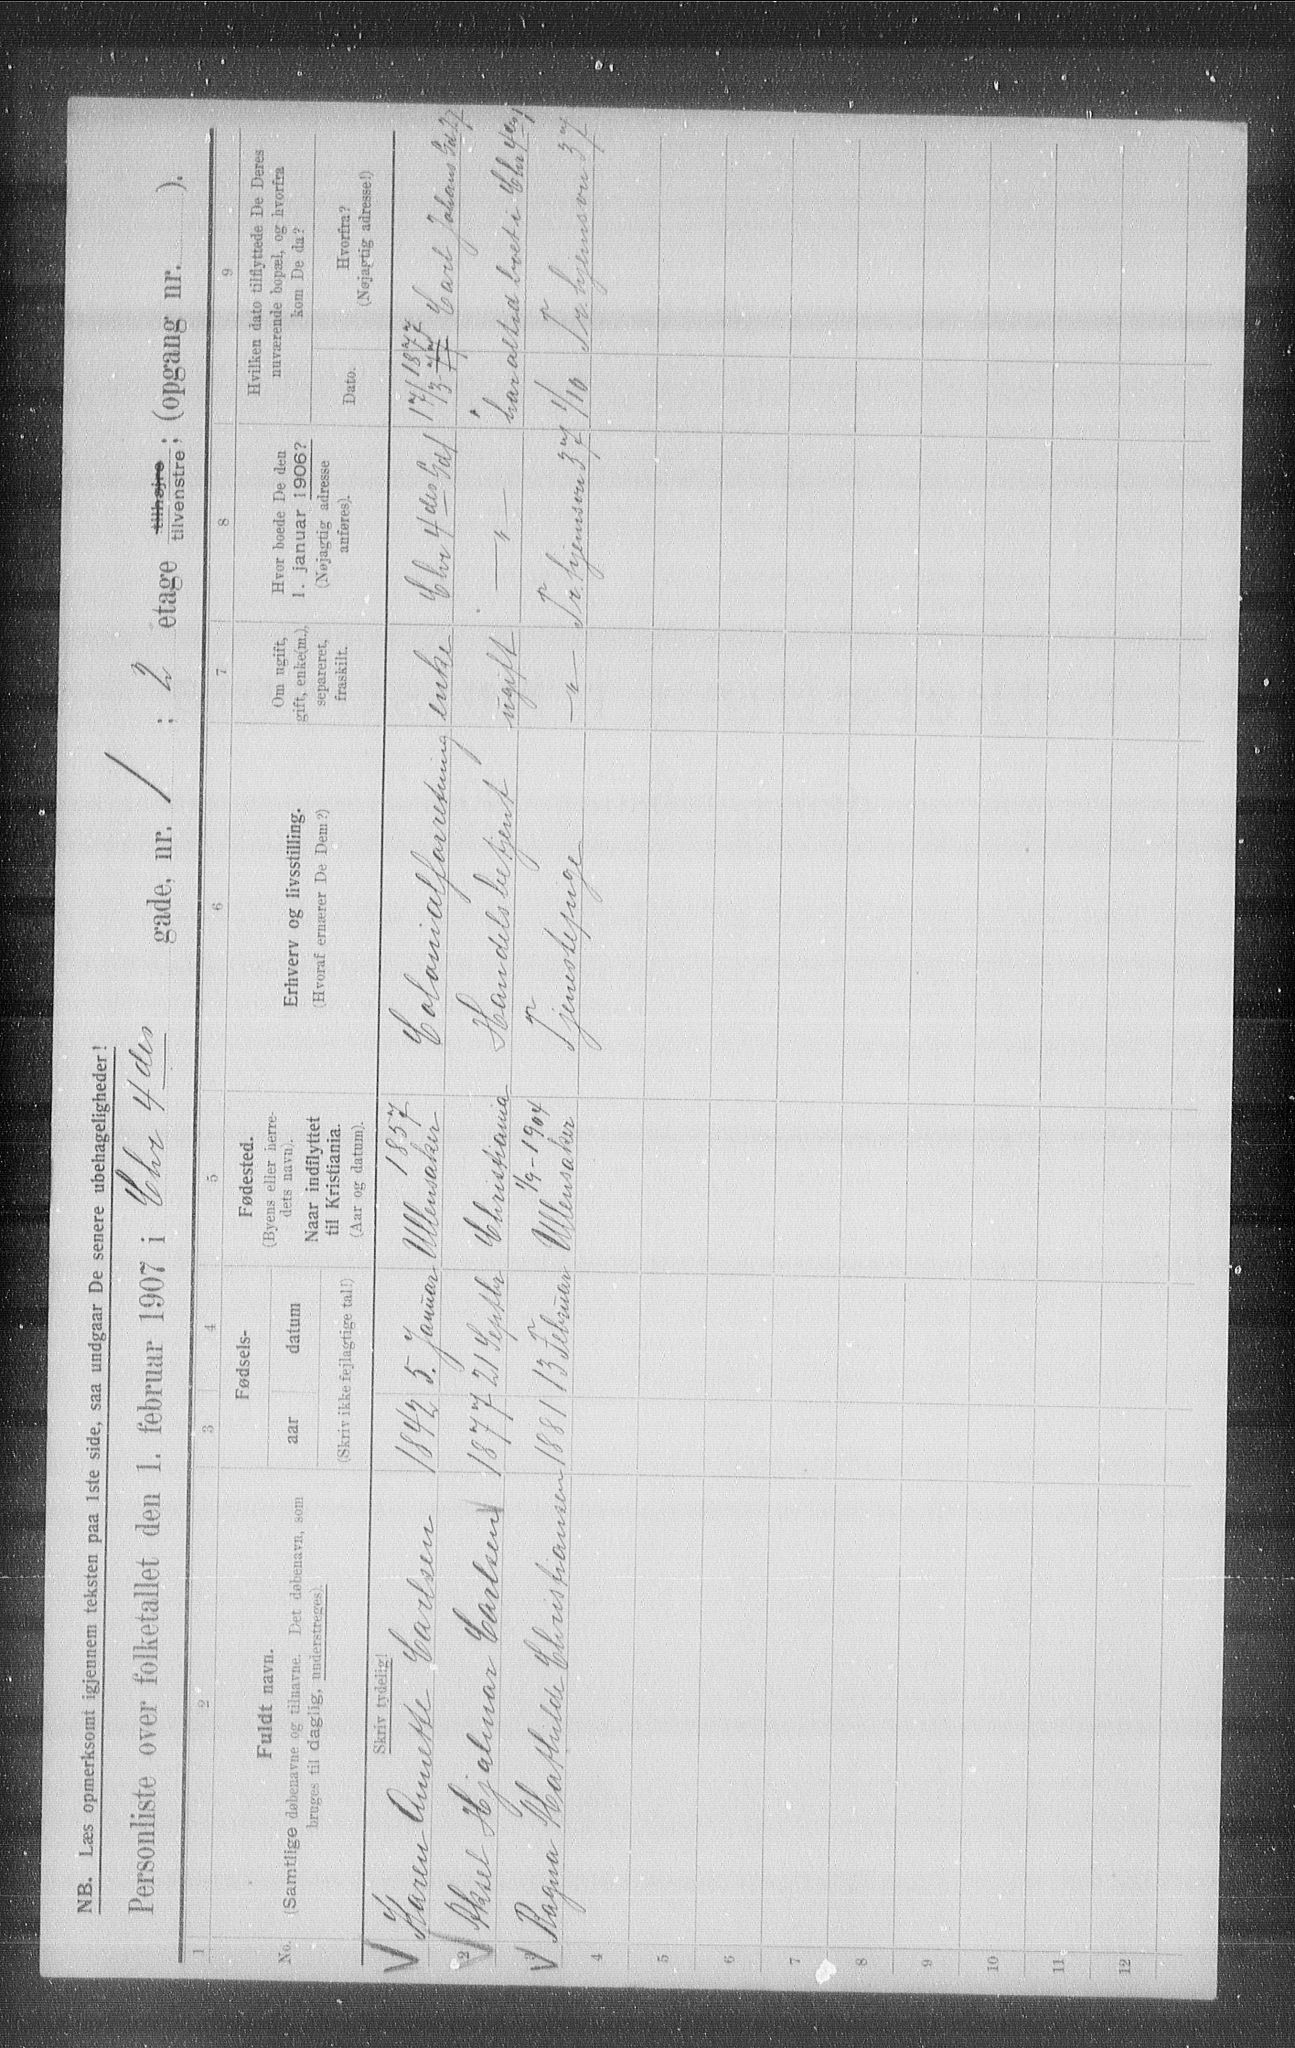 NB. Læs opmerksomt igjennem teksten paa 1ste side, saa undgaar De senere ubehageligheder!
Personliste over folketallet den 1. februar 1907 i Chr 4 des gade, nr. 1 ; 2 etage tilhøjre ; tilvenstre; (opgang nr. ).
1 2 3 4 5 6 7 8 9
No.
Fuldt navn.
(Samtlige døbenavne og tilnavne. Det døbenavn, som
bruges til daglig, understreges).
Skriv tydelig!
Fødsels-
aar datum
(Skriv ikke fejlagtige tal!)
Fødested.
(Byens eller herre-
dets navn).
Naar indflyttet
til Kristiania.
(Aar og datum).
Erhverv og livsstilling.
(Hvoraf ernærer De Dem?)
Om ugift,
gift, enke(m.),
separeret,
fraskilt.
Hvor boede De den
1. januar 1906?
(Nøjagtig adresse
anføres).
Hvilken dato tilflyttede De Deres
nuværende bopæl, og hvorfra
kom De da?
Dato.
Hvorfra?
(Nøjagtig adresse!)
Karen Annette Carlsen 1842 5. Januar Ullensaker 1857 Colonialforretning enke Chr 4 des Gd 17/3 77 1877 Carl Johans Gd 27
2 Aksel Hjalmar Carlsen 1877 21 Septbr Christiania Handelsbetjent ugift — " — har altid boet i Chr 4 des
3 Ragna Mathilde Christiansen 1881 13 Februar Ullensaker 1/9-1904 Tjenestepige — " — Tr. hjemsvn 37 1/10 Tr. hjemsvn 37
4
5
6
7
8
9
10
11
12